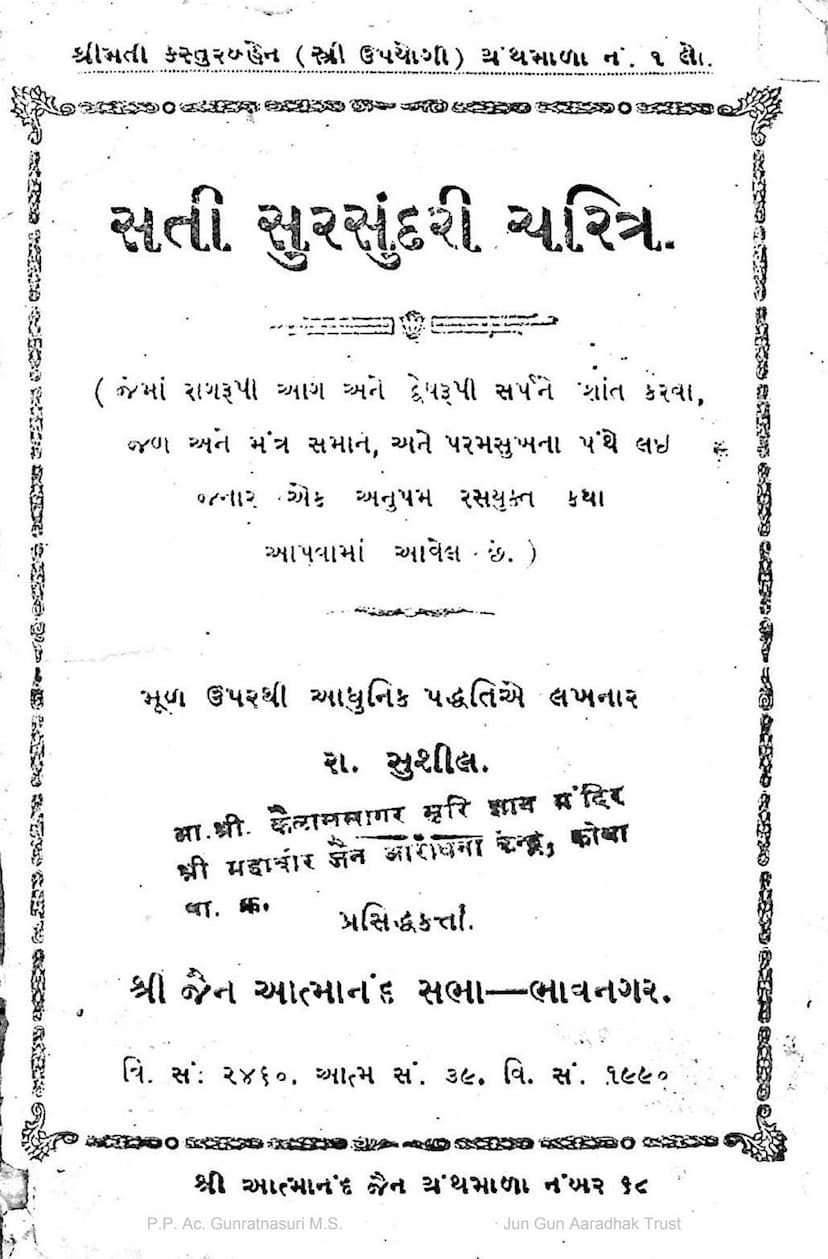 શ્રીમતી કસ્તુરબહેન (સ્ત્રી ઉપયોગી) ગ્રંથમાળા નં. ૧ લો.
સતી સુરસુંદરી ચરિત્ર.
( જેમાં રાગરૂપી આગ અને દ્વેષરૂપી સર્પને શાંત કરવા,
જળ અને મંત્ર સમાન, અને પરમસુખના પંથે લઇ
જનાર એક અનુપમ રસયુક્ત કથા
આપવામાં આવેલ છે. )
મૂળ ઉપરથી આધુનિક પદ્ધતિએ લખનાર
રા. સુશીલ.
आ.श्री. कैलाससागर सूरि ज्ञान मंदिर
श्री महावीर जैन आराधना केन्द्र, कोबा
पा. क्र.
પ્રસિદ્ધકર્ત્તા.
શ્રી જૈન આત્માનંદ સભા—ભાવનગર.
વિ. સં. ૨૪૬૦. આત્મ સં. ૩૯. વિ. સં. ૧૯૯૦
શ્રી આત્માનંદ જૈન ગ્રંથમાળા નંબર
P.P. Ac. Gunratnasuri M.S.
Jun Gun Aaradhak Trust